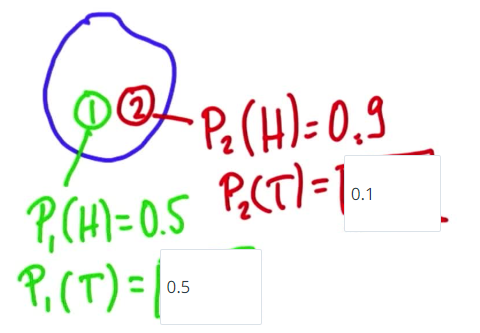 1 2
P₂(H)=0.9
P₂(T)= 0.1
P₁(H)=0.5
P₁(T)= 0.5